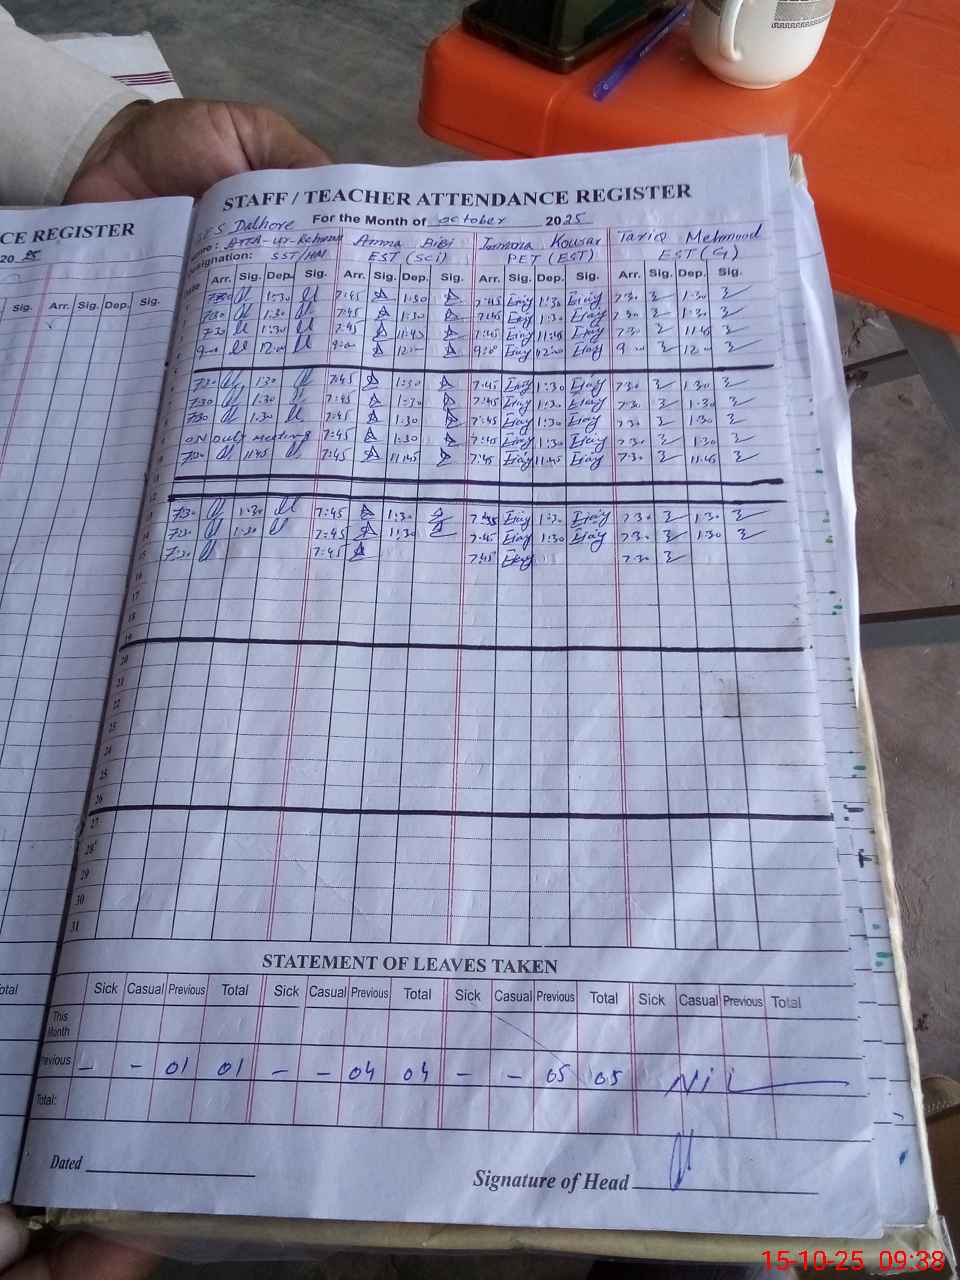 STAFF / TEACHER ATTENDANCE REGISTER
CE REGISTER
For the Month of October 2025
20 25
Dalhore
Amna Bibi
Kousar
Tariq Mehmood
Designation: SST/HM
EST (Sci)
PET (EST)
EST (G)
Sig. Arr. Sig. Dep. Sig.
Arr. Sig. Dep. Sig. Arr. Sig. Dep. Sig. Arr. Sig. Dep. Sig. Arr. Sig. Dep. Sig.
7:30 1:30 7:45 1:30 7:45 1:30 7:30 1:30
7:30 1:30 7:45 1:30 7:45 1:30 7:30 1:30
7:30 1:30 7:45 11:45 7:45 11:45 7:30 11:45
9:00 12:00 9:00 12:00 9:00 12:00 9:00 12:00
7:30 1:30 7:45 1:30 7:45 1:30 7:30 1:30
7:30 1:30 7:45 1:30 7:45 1:30 7:30 1:30
7:30 1:30 7:45 1:30 7:45 1:30 7:30 1:30
ON Duty Meeting 7:45 1:30 7:45 1:30 7:30 1:30
7:30 11:45 7:45 11:45 7:45 11:45 7:30 11:45
7:30 1:30 7:45 1:30 7:45 1:30 7:30 1:30
7:30 1:30 7:45 1:30 7:45 1:30 7:30 1:30
15 7:30 7:45 7:45 7:30
16
17
18
19
20
21
22
23
24
25
26
27
28
29
30
31
STATEMENT OF LEAVES TAKEN
Sick Casual Previous Total Sick Casual Previous Total Sick Casual Previous Total Sick Casual Previous Total
This Month
Previous – – 01 01 – – 04 04 – – 05 05 Nil
Total:
Dated
Signature of Head
15-10-25 09:38